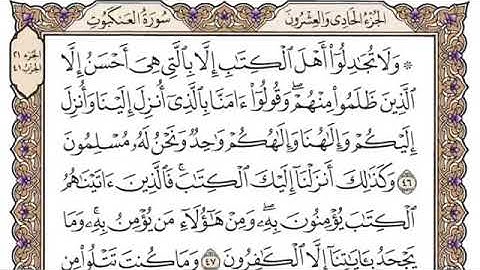 الجزء الحادى والعشرون
سورة العنكبوت
الجزء ٢١
الحزب ٤١
۞ وَلَا تُجَٰدِلُوٓا۟ أَهْلَ ٱلْكِتَٰبِ إِلَّا بِٱلَّتِى هِىَ أَحْسَنُ إِلَّا
ٱلَّذِينَ ظَلَمُوا۟ مِنْهُمْ ۖ وَقُولُوٓا۟ ءَامَنَّا بِٱلَّذِىٓ أُنزِلَ إِلَيْنَا وَأُنزِلَ
إِلَيْكُمْ وَإِلَٰهُنَا وَإِلَٰهُكُمْ وَٰحِدٌ وَنَحْنُ لَهُۥ مُسْلِمُونَ
٤٦ وَكَذَٰلِكَ أَنزَلْنَآ إِلَيْكَ ٱلْكِتَٰبَ ۚ فَٱلَّذِينَ ءَاتَيْنَٰهُمُ
ٱلْكِتَٰبَ يُؤْمِنُونَ بِهِۦ ۖ وَمِنْ هَٰٓؤُلَآءِ مَن يُؤْمِنُ بِهِۦ ۚ وَمَا
يَجْحَدُ بِـَٔايَٰتِنَآ إِلَّا ٱلْكَٰفِرُونَ ٤٧ وَمَا كُنتَ تَتْلُوا۟ مِن